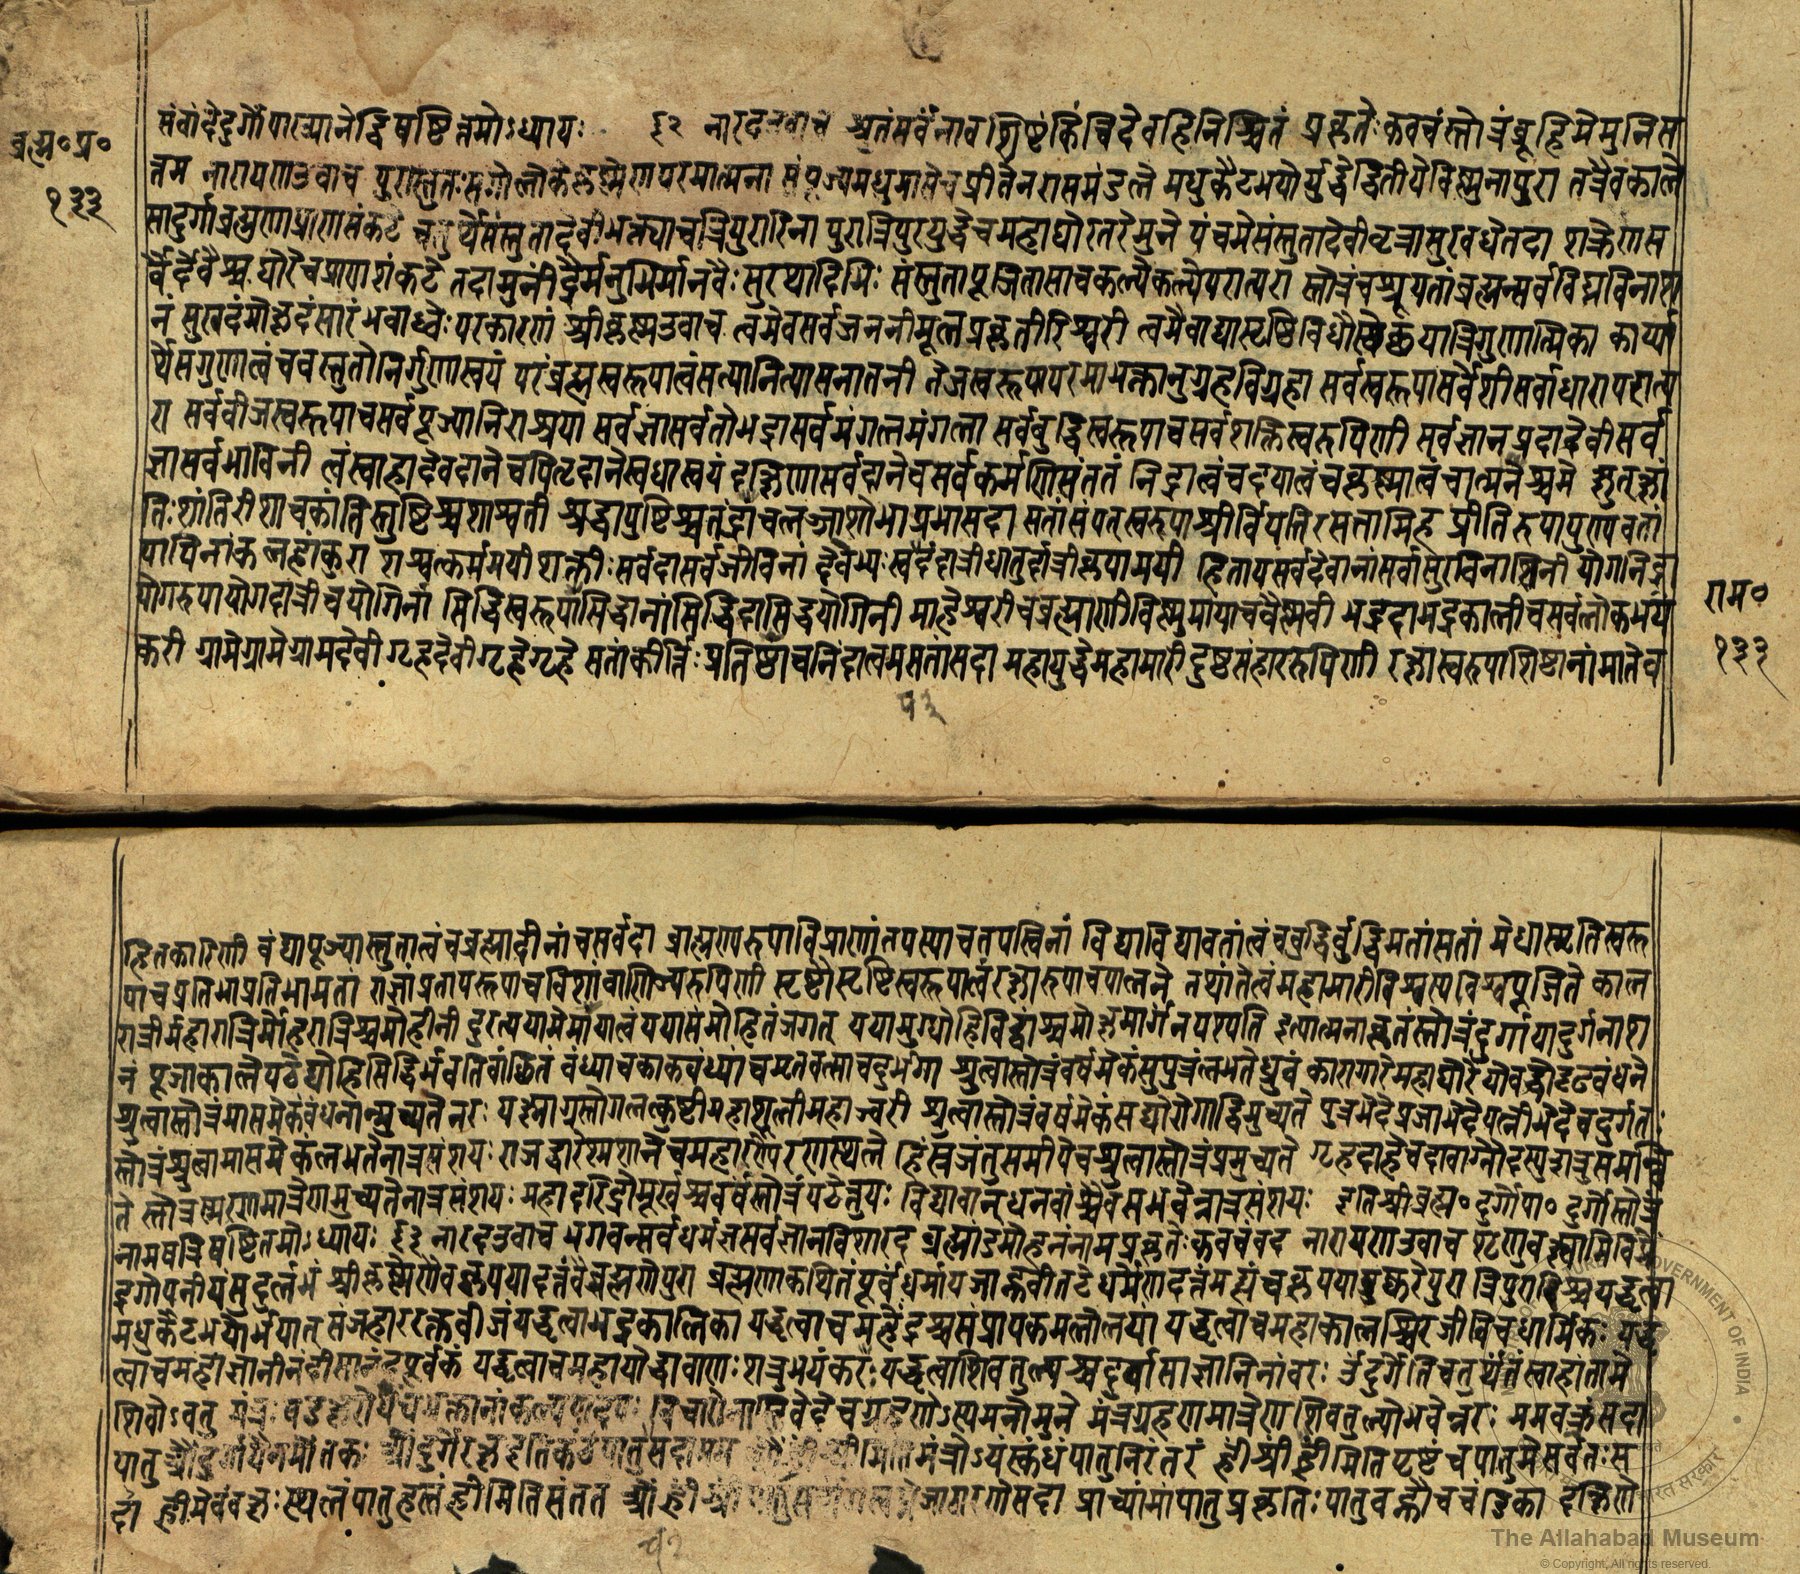 संवादेदुर्गोपाख्यानेद्विषष्टित्तमोऽध्यायः ६२ नारदउवाच श्रुतंसर्वंनावशिष्टंकिंचिदेवहिनिश्चितं प्रकृतेःकवचंस्तोत्रंब्रूहिमेमुनिस
ब्रह्म॰प्र॰
१३३
त्तम नारायणउवाच पुरास्तुतःसगोलोकेकृष्णेणपरमात्मना संपूज्यमधुमासेचप्रीतेनरासमंडले मधुकैटभयोर्युद्धेद्वितीयेविष्णुनापुरा तत्रैवकाले
सादुर्गाब्रह्मणाप्राणसंकटे चतुर्थेसंस्तुतादेवीभक्त्याचत्रिपुरारिना पुरात्रिपुरयुद्धेचमहाघोरतरेमुने पंचमेसंस्तुतादेवीवृत्रासुरवधेतदा शक्रेणस
र्वैर्देवैश्च घोरेचप्राणशंकटे तदामुनींद्रैर्मनुभिर्मानवैः सुरथादिभिः संस्तुतापूजितासाचकल्पेकल्पेपरात्परा स्तोत्रंचश्रूयतांब्रह्मन्सर्वविघ्नविनाश
नं सुखदंमोक्षदंसारंभवाब्धेःपरकारणं श्रीकृष्णउवाच त्वमेवसर्वजननीमूलप्रकृतीरिश्वरी त्वमेवाद्यासृष्टिविधौस्वेच्छयात्रिगुणात्मिका कार्य्या
र्थेसगुणात्वंचवस्तुतोनिर्गुणास्वयं परंब्रह्मस्वरूपात्वंसत्यानित्यासनातनी तेजस्वरूपापरमाभक्तानुग्रहविग्रहा सर्वस्वरूपासर्वेशीसर्वाधारापरात्प
रा सर्ववीजस्वरूपाचसर्वपूज्यानिराश्रया सर्वज्ञासर्वतोभद्रासर्वमंगलमंगला सर्ववुद्धिस्वरूपाचसर्वशक्तिस्वरुपिणी सर्वज्ञानप्रदादेवीसर्व
ज्ञासर्वभाविनी त्वंस्वाहादेवदानेचपितृदानेस्वधास्वयं दक्षिणासर्वदानेचसर्वकर्मणिसंततं निद्रात्वंचदयात्वंचकृष्णात्वंचात्मनेश्चमे क्षुतक्षां
तिःशांतिरीशाचकांतिस्तुष्टिश्चशाश्वती श्रद्धापुष्टिश्चतंद्राचलज्जाशोभाप्रभासदा सतांसंपत्स्वरुपाश्रीर्विपत्तिरसतामिह प्रीतिरुपापुण्यवतां
पापिनांकलहांकुरा शश्वत्कर्ममयीशक्तीःसर्वदासर्वजीविनां देवेभ्यःस्वपदंदात्रीधातुर्दात्रीकृपामयी हितायसर्वदेवानांसर्वासुरविनाशिनी योगनिद्रा
योगरुपायोगदात्रीचयोगिनां सिद्धिस्वरूपासिद्धानांसिद्धिदासिद्धयोगिनी माहेश्वरीचब्रह्माणीविष्णुमायाचवैष्णवी भद्रदाभद्रकालीचसर्वलोकभयं
करी ग्रामेग्रामेग्रामदेवीगृहदेवीगृहेगृहे सतांकीर्त्तिःप्रतिष्ठाचनिंदात्वमसतांसदा महायुद्धेमहामारीदुष्टसंहाररुपिणी रक्षास्वरुपाशिष्टानांमातेव
राम॰
१३३
हितकारिणी वंद्यापूज्यास्तुतात्वंचब्रह्मादीनांचसर्वदा ब्राह्मण्यरुपाविप्राणांतपस्याचतपस्विनां विद्याविद्यावतांत्वंचवुद्धिर्वुद्धिमतांसतां मेधास्मृतिस्वरू
पाचप्रतिभाप्रतिभामतां राज्ञांप्रतापरूपाचविशांवाणिज्यरुपिणी सृष्टौसृष्टिस्वरूपात्वंरक्षारुपाचपालने तथांतेत्वंमहामारीविश्वस्यविश्वपूजिते काल
रात्रीर्महारात्रिर्मोहरात्रिश्चमोहीनी दुरत्ययामेमायात्वंययासंमोहितंजगत् ययामुग्धोहिविद्वांश्चमोक्षमार्गंनपश्यति इत्यात्मनाकृतंस्तोत्रंदुर्गायादुर्गनाश
नं पूजाकालेपठेद्योहिसिद्धिर्भवतिवांछितं वंध्याचकाकवंध्याचमृतवत्साचदुर्भगा श्रुत्वास्तोत्रंवर्षमेकंसुपुत्रंलभतेध्रुवं कारागारेमहाघोरेयोवद्धोदृढवंधने
श्रुत्वास्तोत्रंमासमेकंवंधनान्मुच्यतेनरः यक्ष्माग्रस्तोगलत्कुष्टीमहाशूलीमहाज्वरी श्रुत्वास्तोत्रंवर्षमेकंसद्योरोगाद्विमुच्यते पुत्रभेदेप्रजाभेदेपत्नीभेदेचदुर्गतः
स्तोत्रंश्रुत्वामासमेकंलभतेनात्रसंशयः राजद्वारेश्मशानेचमहारण्येरणस्थले हिंस्रजंतुसमीपेचश्रुत्वास्तोत्रंप्रमुच्यते गृहदाहेचदावाग्नौदस्युशत्रुसमन्वि
ते स्तोत्रश्रवणमात्रेणमुच्यतेनात्रसंशयः महादरिद्रोमूर्खश्चवर्षंस्तोत्रंपठेत्तुयः विद्यावान्धनवांश्चैवसभवेन्नात्रसंशयः इतिश्रीब्रह्म॰दुर्गोपा॰दुर्गास्तोत्रं
नामषत्रिषष्टितमोऽध्यायः ६३ नारदउवाच भगवन्सर्वधर्मज्ञसर्वज्ञानविशारद ब्रह्मांडमोहनंनामप्रकृतेःकवचंवद नारायणउवाच शृणुवक्ष्यामिविप्रें
द्रगोपनीयंसुदुर्लभं श्रीकृष्णेणैवकृपयादत्तंवैब्रह्मणेपुरा ब्रह्मणाकथितंपूर्वंधर्मायजाह्नवीतटे धर्मेणदत्तंमह्यंचकृपयापुष्करेपुरा त्रिपुरारिश्चयद्धृत्वा
मधुकैटभयोर्भयात् संजहाररक्तवीजंयद्धृत्वाभद्रकालिका यद्धृत्वाचमहेंद्रश्चसंप्रापकमलालयां यद्धृत्वाचमहाकालश्चिरजीवीचधार्मिकः यद्धृ
त्वाचमहाज्ञानीनंदीसानंदपूर्वकं यद्धृत्वाचमहायोद्धावाणःशत्रुभयंकरः यद्धृत्वाशिवतुल्यश्चदुर्वासाज्ञानिनांवरः ॐदुर्गेतिचतुर्थ्यंतंस्वाहांतोमे
शिरोऽवतु मंत्रःषडक्षरो भक्तानांकल्पपादपः विचारोनास्तिवेदेचग्रहणेऽस्यमनोमुने मंत्रग्रहणमात्रेणशिवतुल्योभवेन्नरः ममवक्त्रंसदा
पातु दुर्गायैनमोंतकः दुर्गेरक्षइतिकंठंपातुसदामम मंत्रोऽयंस्कंधंपातुनिरंतरं ह्रींश्रींह्रीमितिपृष्ठंचपातुमेसर्वतःस
दा ह्रींमेवंवक्षःस्थलंपातुहस्तंह्रीमितिसंतत रणेसदा प्राच्यांमांपातुप्रकृतिःपातुवह्नौचचंडिका दक्षिणे
The Allahabad Museum
© Copyright, All rights reserved.